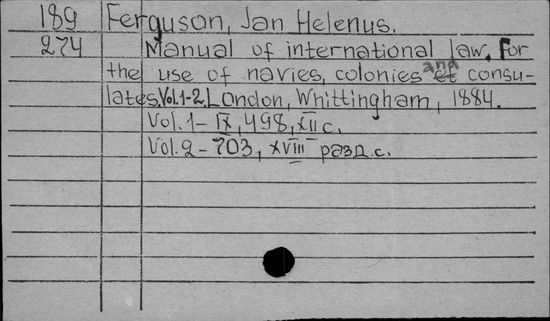 189 Ferguson, Jan Helenus.
274 Manual of international law, For
the use of navies, colonies and et consu-
lates. Vol. 1-2. London, Whittingham, 1884.
Vol. 1 - IX, 498, XII с.
Vol. 2 - 703, XVIII разд. с.